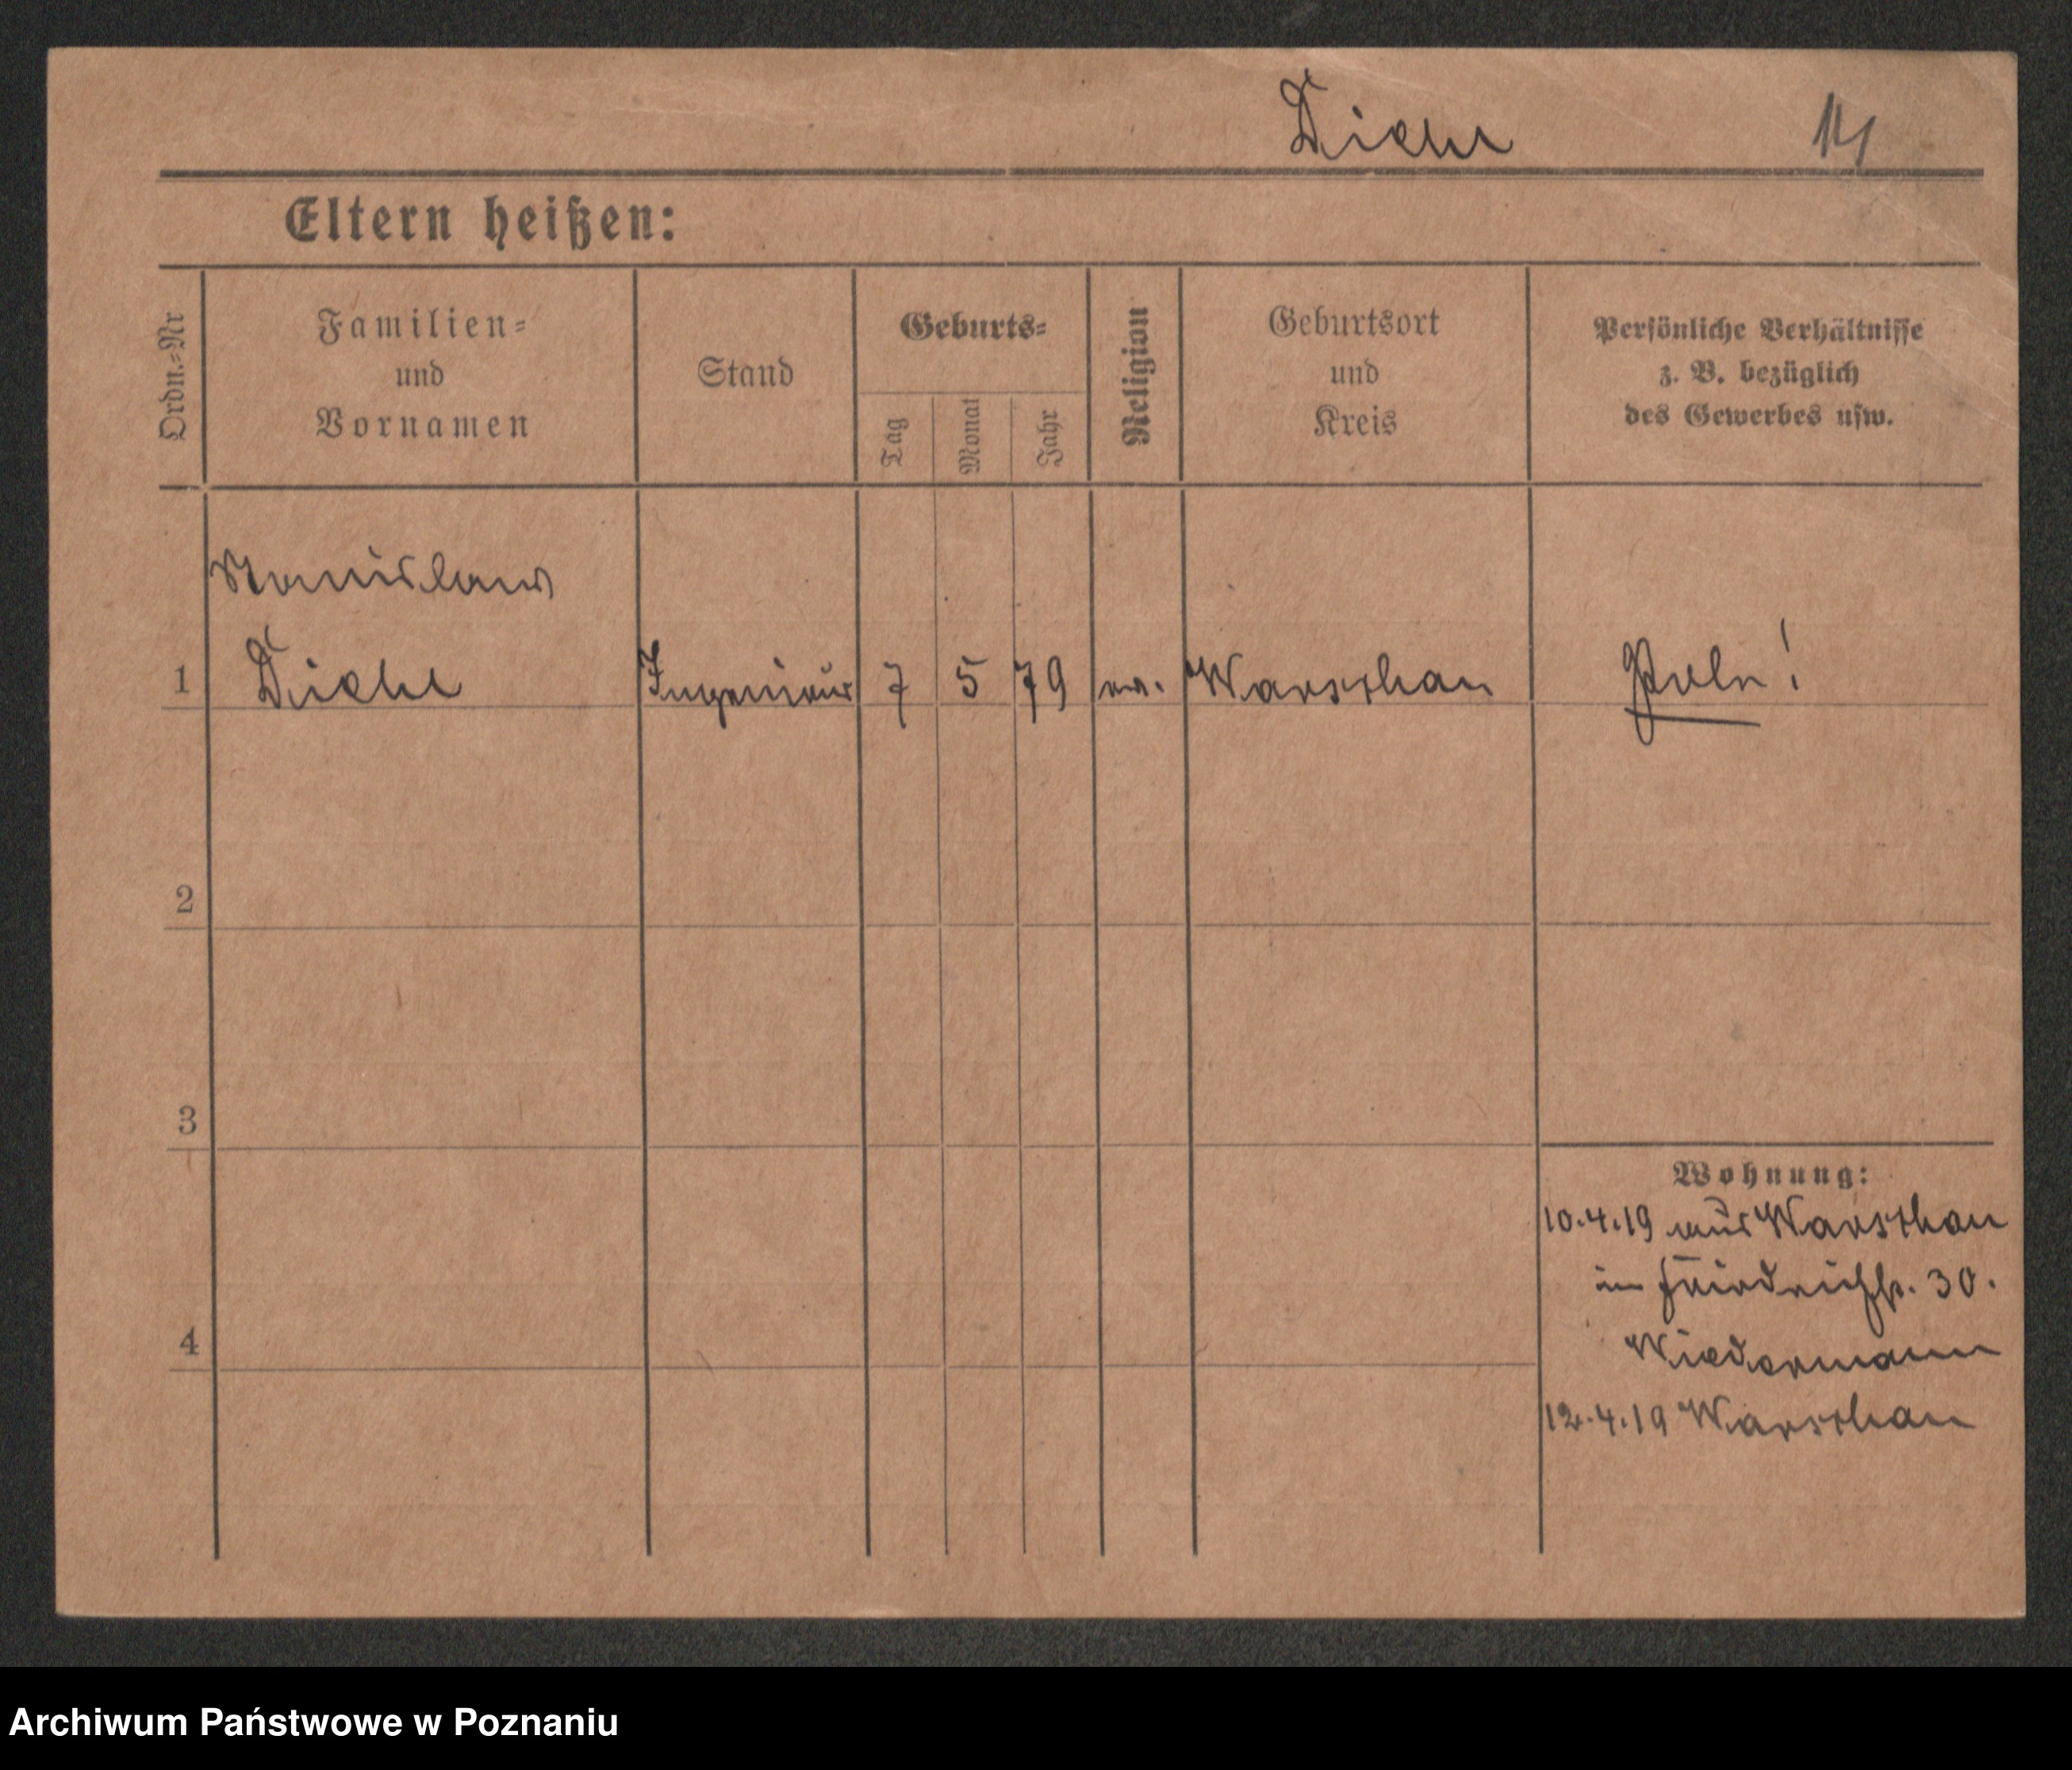 Diehl 14
Eltern heißen:
Ordn.-Nr
Familien-
und
Vornamen
Stand
Geburts-
Tag
Monat
Jahr
Religion
Geburtsort
und
Kreis
Persönliche Verhältnisse
z. B. bezüglich
des Gewerbes usw.
Stanislaus
1 Diehl Ingenieur 7 5 79 ev. Warschau Pole!
2
3
4
Wohnung:
10.4.19 aus Warschau
in Friedrichstr. 30.
Wiedermann
12.4.19 Warschau
Archiwum Państwowe w Poznaniu